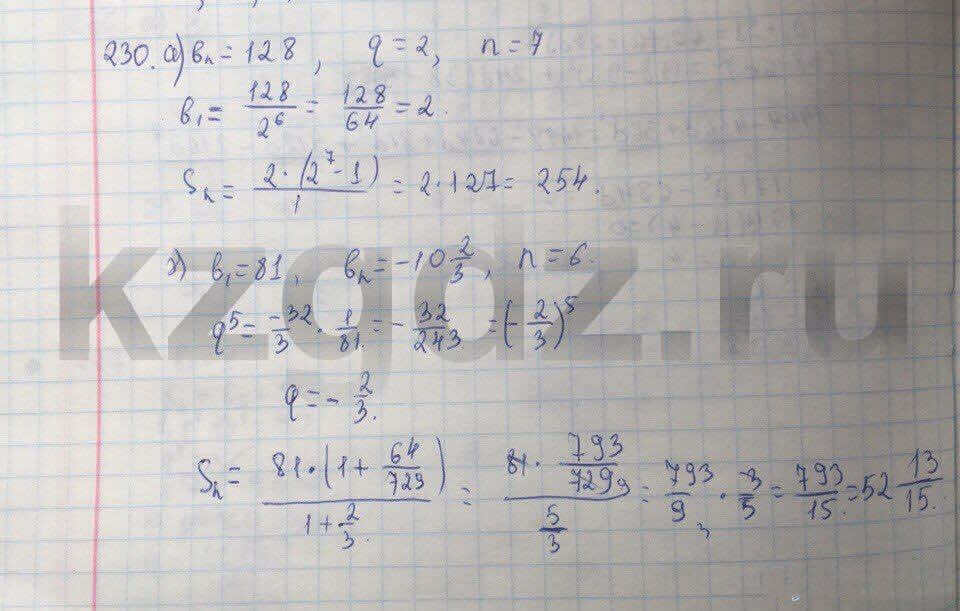 230. а) bₙ = 128, q = 2, n = 7
b₁ = 128/2⁶ = 128/64 = 2.
Sₙ = 2·(2⁷-1)/1 = 2·127 = 254.
г) b₁ = 81, bₙ = -10 2/3, n = 6.
q⁵ = -32/3 · 1/81 = -32/243 = (-2/3)⁵
q = -2/3.
Sₙ = 81·(1+64/729)/(1+2/3) = (81·793/729 9)/(5/3) = 793/9 3 · 3/5 = 793/15 = 52 13/15.
kzgdz.ru